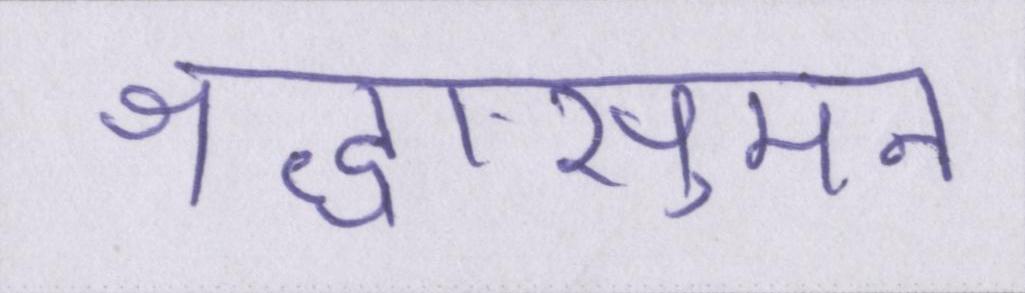 श्रद्धा-सुमन